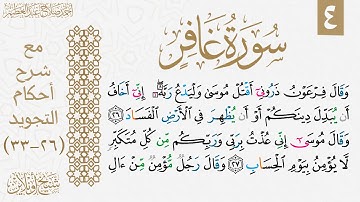 ٤
سُورَةُ غَافِرٍ
مع
شرح
أحكام
التجويد
(٢٦-٣٣)
وَقَالَ فِرْعَوْنُ ذَرُونِىٓ أَقْتُلْ مُوسَىٰ وَلْيَدْعُ رَبَّهُۥٓ ۖ إِنِّىٓ أَخَافُ
أَن يُبَدِّلَ دِينَكُمْ أَوْ أَن يُظْهِرَ فِى ٱلْأَرْضِ ٱلْفَسَادَ ٢٦
وَقَالَ مُوسَىٰٓ إِنِّى عُذْتُ بِرَبِّى وَرَبِّكُم مِّن كُلِّ مُتَكَبِّرٍ
لَّا يُؤْمِنُ بِيَوْمِ ٱلْحِسَابِ ٢٧ وَقَالَ رَجُلٌ مُّؤْمِنٌ مِّنْ ءَالِ